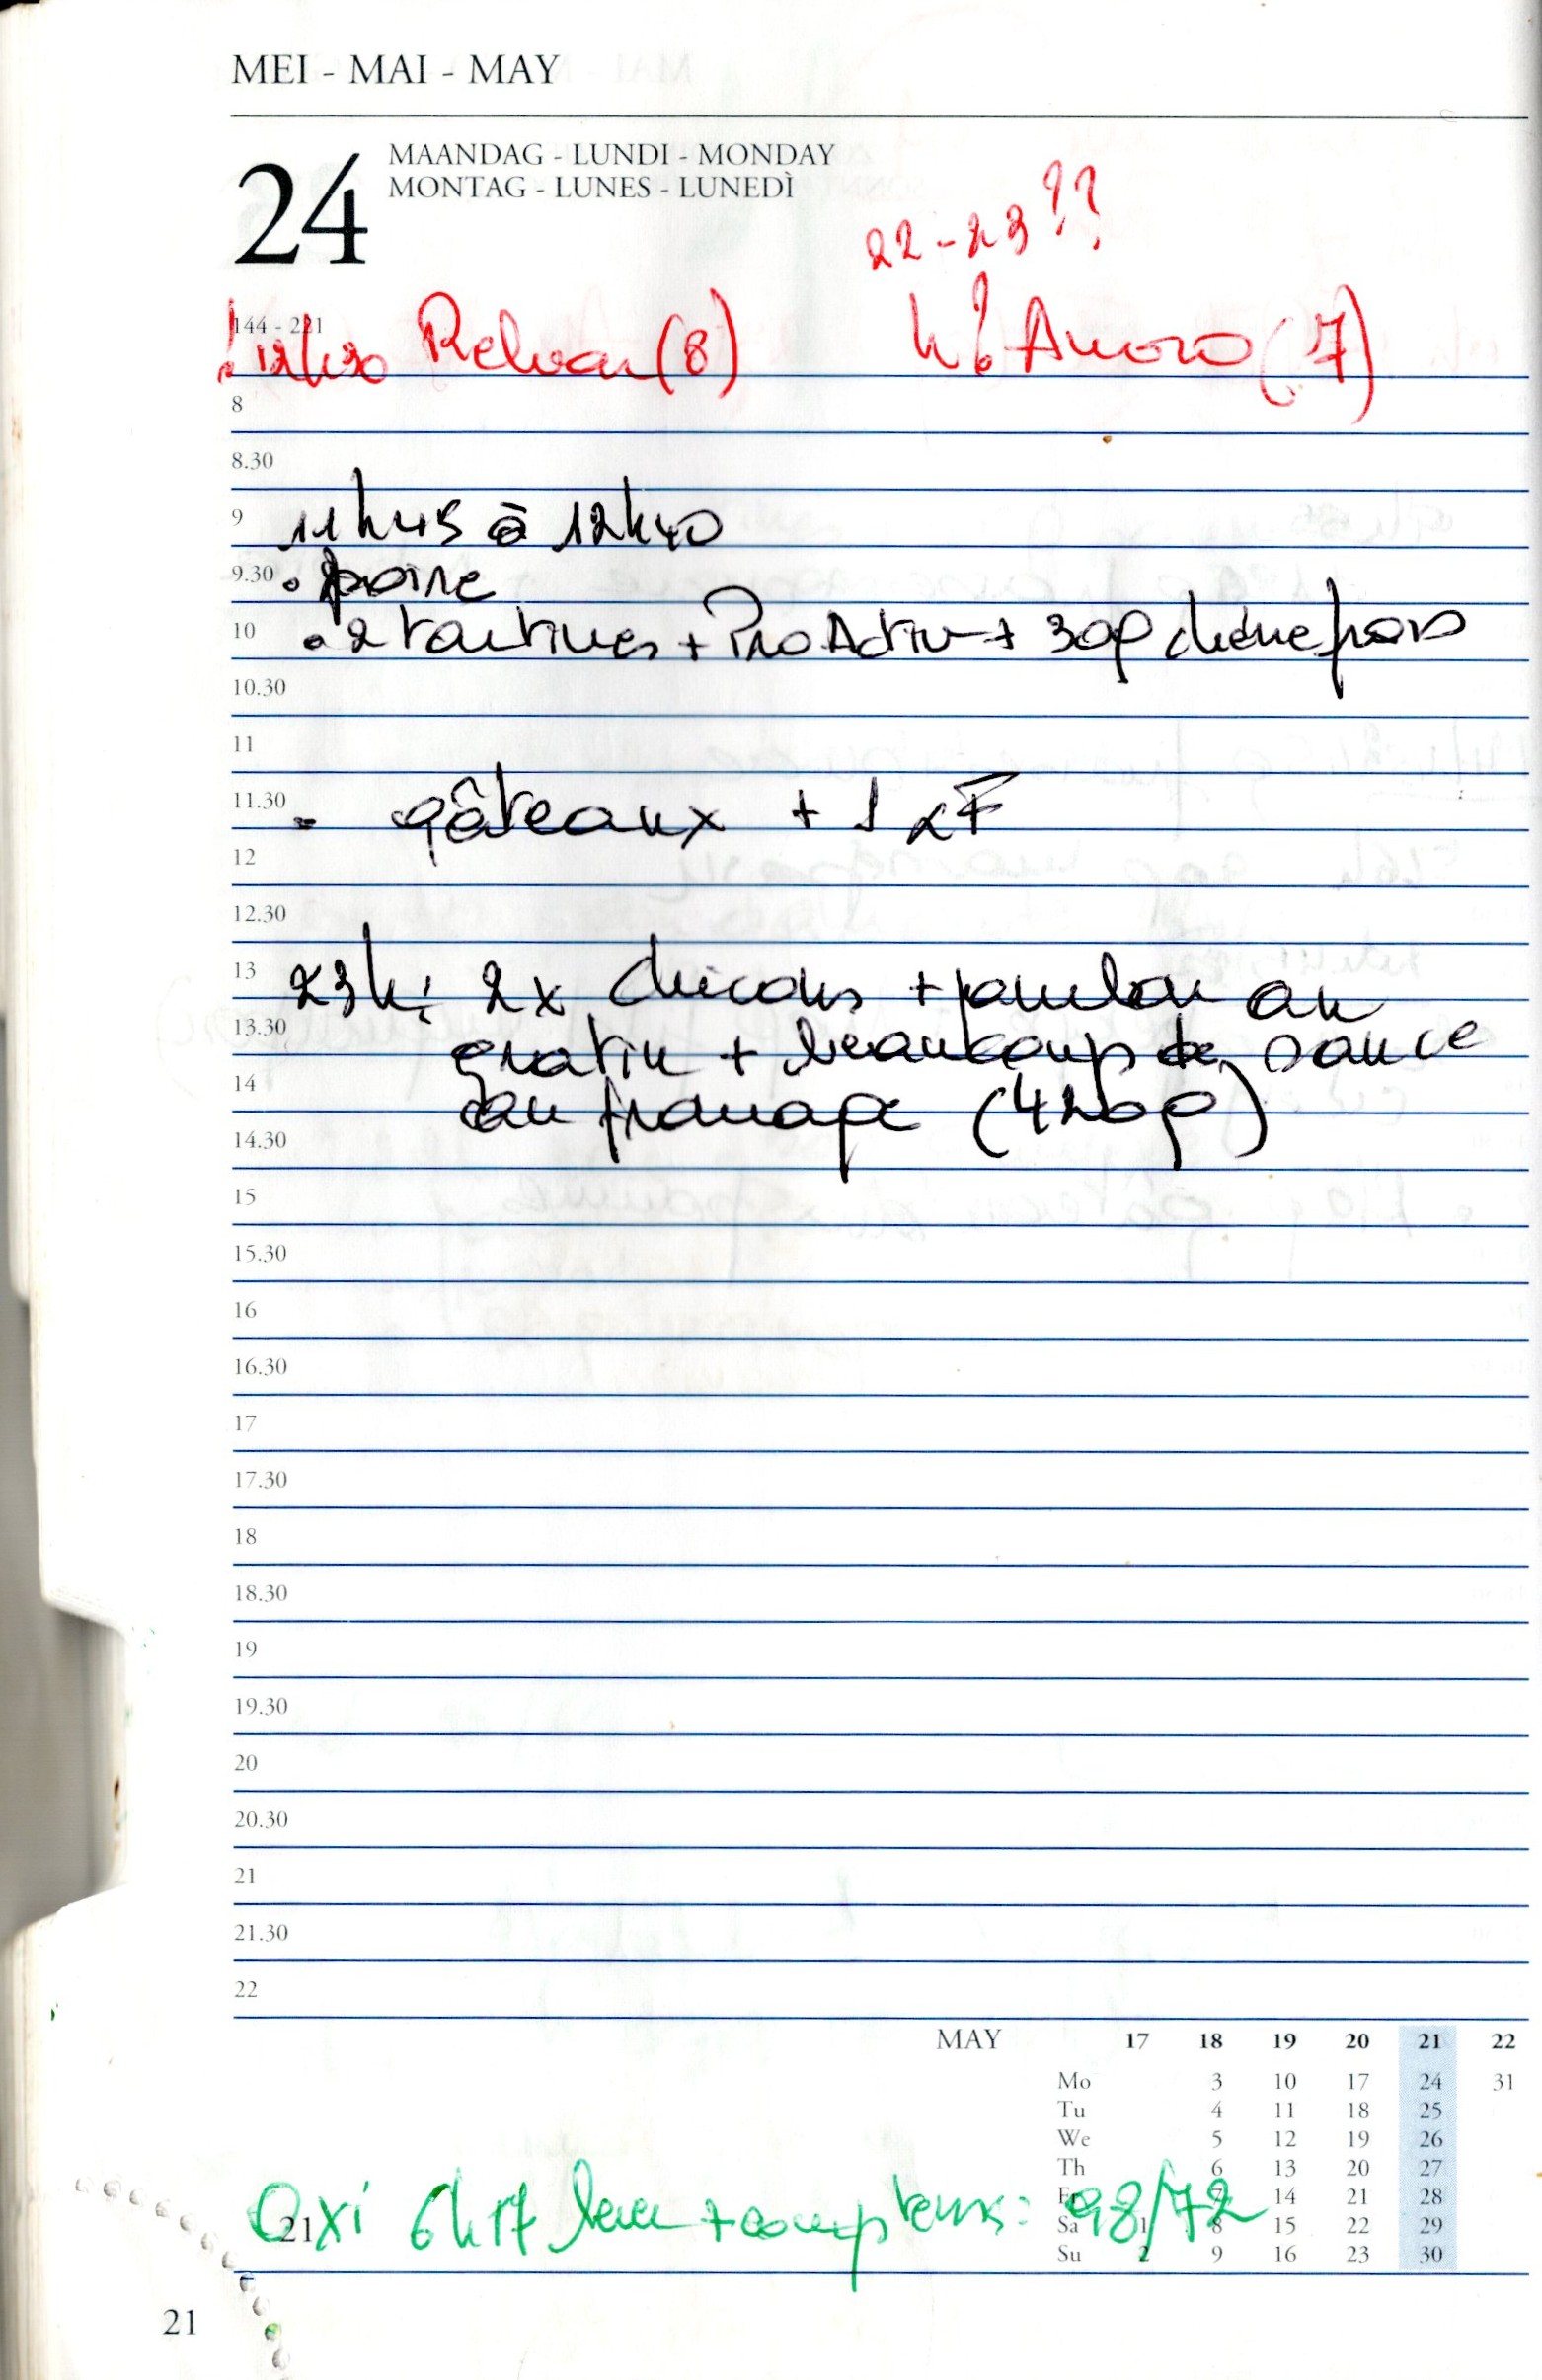 MEI - MAI - MAY
24
MAANDAG - LUNDI - MONDAY
MONTAG - LUNES - LUNEDÌ
22-23??
144 - 221
12h20 Relvar (8) h? Amoro (7)
8
8.30
9 11h45 à 12h40
9.30 • poire
10 • 2 tartines + ProActiv + 30g chèvre frais
10.30
11
11.30 - gâteaux + 1
12
12.30
13 23h: 2x chicons + jambon au
13.30 gratin + beaucoup de sauce
14 au fromage (420g)
14.30
15
15.30
16
16.30
17
17.30
18
18.30
19
19.30
20
20.30
21
21.30
22
MAY 17 18 19 20 21 22
Mo 3 10 17 24 31
Tu 4 11 18 25
We 5 12 19 26
Th 6 13 20 27
Fr 14 21 28
Sa 1 8 15 22 29
Su 2 9 16 23 30
Oxi 6h17 lever + comp tens: 98/72
21
21